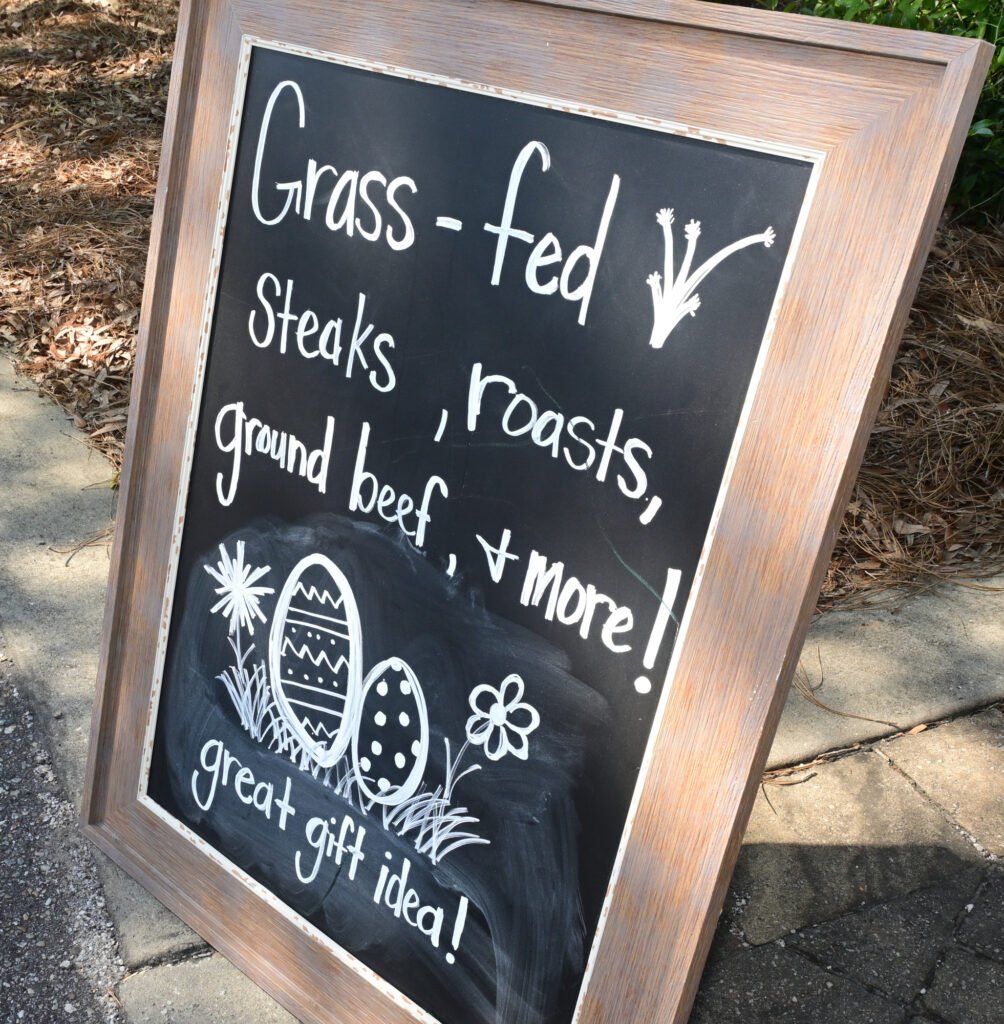 Grass-fed
Steaks, roasts,
ground beef, + more!
great gift idea!